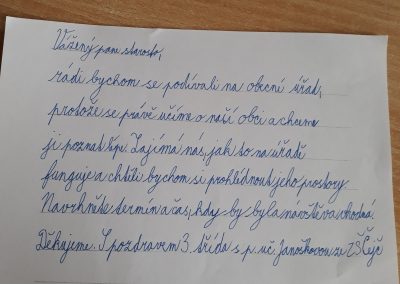 Vážený pane starosto,
rádi bychom se podívali na obecní úřad,
protože se právě učíme o naší obci a chceme
ji poznat lépe. Zajímá nás, jak to na úřadě
funguje a chtěli bychom si prohlédnout jeho prostory.
Navrhněte termín a čas, kdy by byla návštěva vhodná.
Děkujeme. S pozdravem 3. třída s p. uč. Janoškovou ze ZŠ Čejč